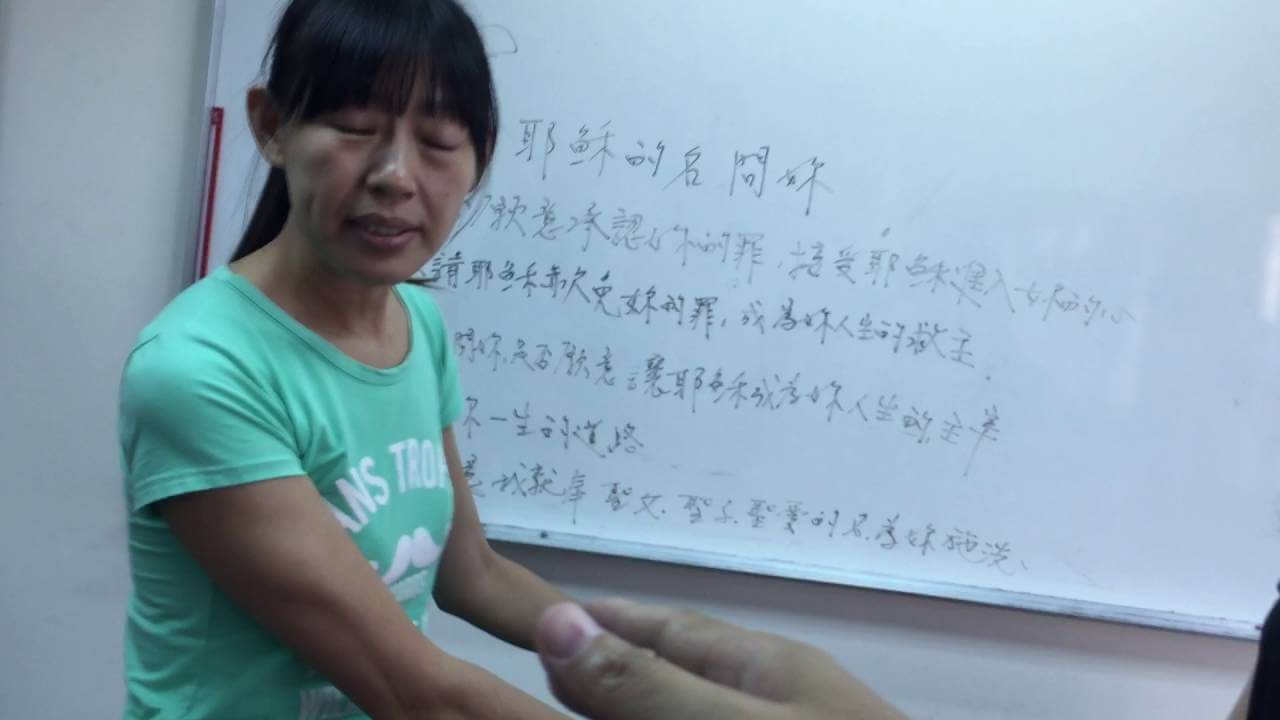 耶穌的名問妳
願意承認妳的罪,接受耶穌進入妳的心
請耶穌赦免妳的罪,成為妳人生的救主.
問妳,是否願意讓耶穌成為妳人生的主宰
一生的道路
我就奉聖父.聖子.聖靈的名為妳施洗、
ANS TROP